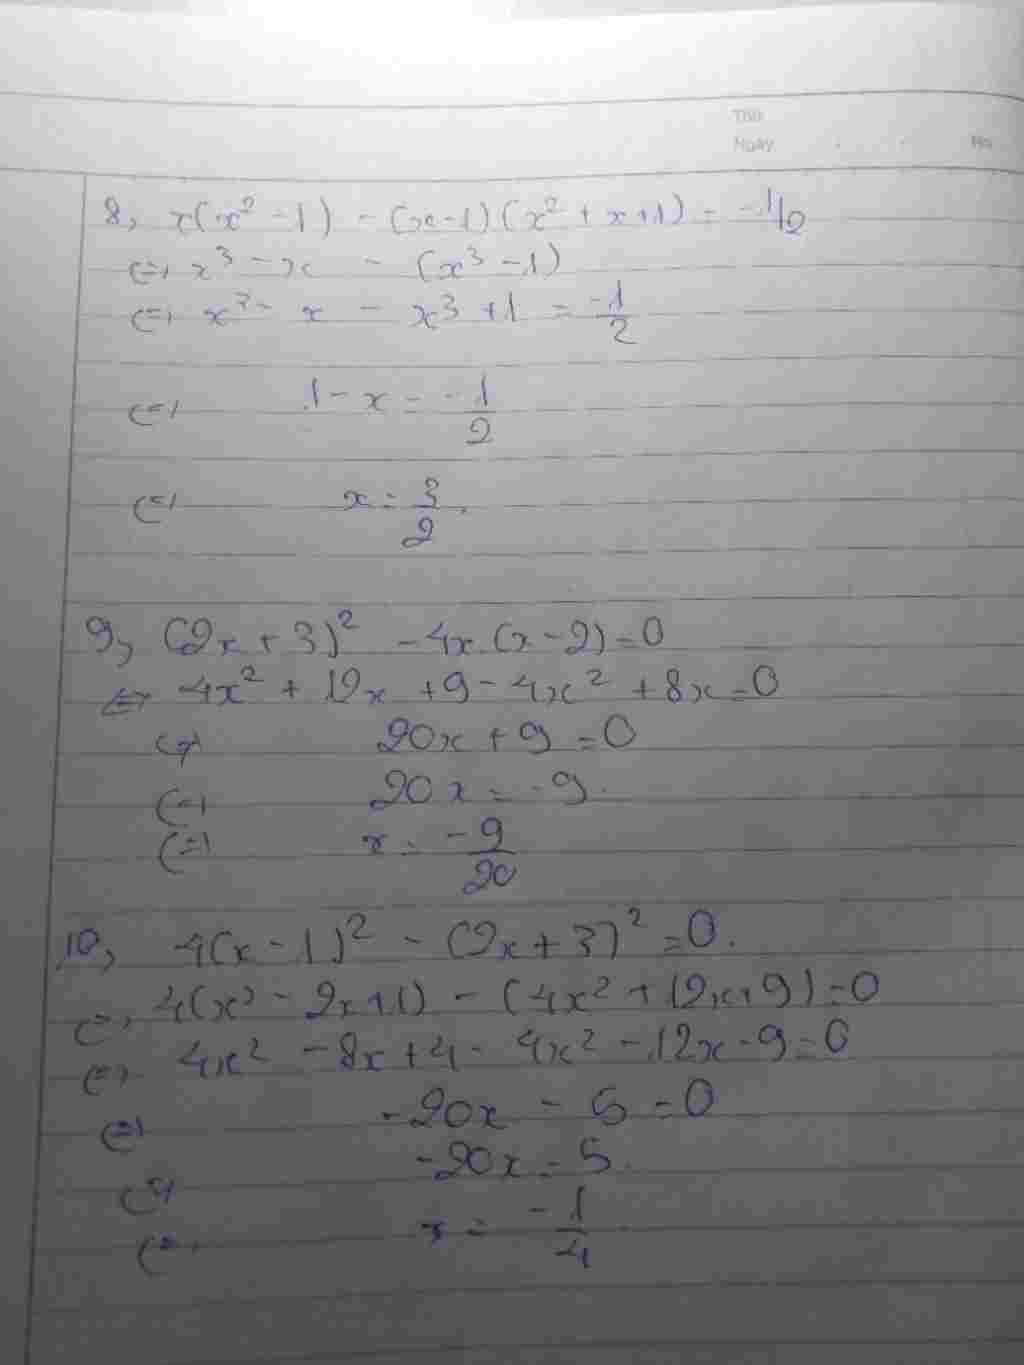 Thứ
Ngày . . No
8, x(x² - 1) - (x-1)(x² + x+1) = -1/2
<=> x³ - x - (x³ - 1)
<=> x³ - x - x³ + 1 = -1/2
<=> 1 - x = -1/2
<=> x = 3/2.
9, (2x + 3)² - 4x.(x - 2) = 0
<=> 4x² + 12x + 9 - 4x² + 8x = 0
<=> 20x + 9 = 0
<=> 20x = -9.
<=> x = -9/20
10, 4(x - 1)² - (2x + 3)² = 0.
<=> 4(x² - 2x + 1) - (4x² + 12x + 9) = 0
<=> 4x² - 8x + 4 - 4x² - 12x - 9 = 0
<=> -20x - 5 = 0
<=> -20x = 5.
<=> x = -1/4